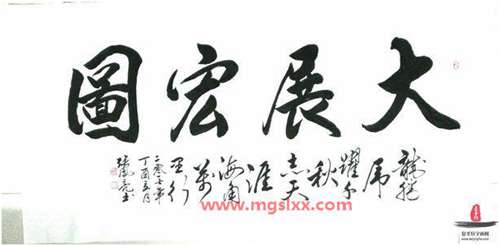 大展宏圖
龍騰
虎
躍千
秋
志天
涯
海闊
萬
里行
二零一七年
丁酉五月
www.mgslxx.com